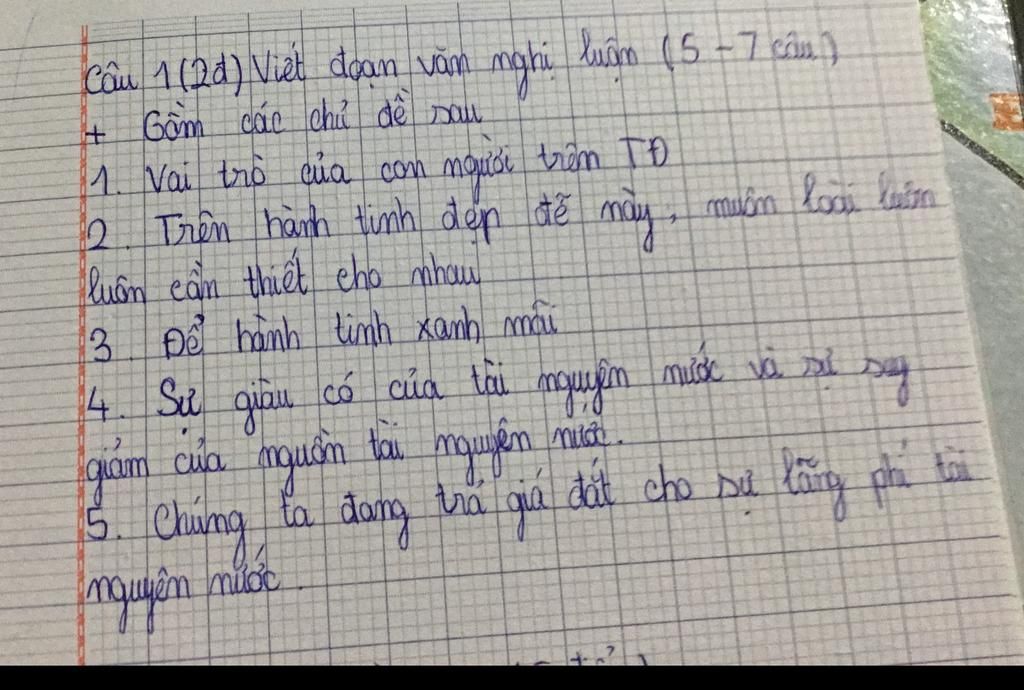 Câu 1 (2đ) Viết đoạn văn nghị luận (5 - 7 câu)
+ Gồm các chủ đề sau
1. Vai trò của con người trên TĐ
2. Trên hành tinh đẹp đẽ này, muôn loài luôn
luôn cần thiết cho nhau
3. Để hành tinh xanh mãi
4. Sự giàu có của tài nguyên nước và sự suy
giảm của nguồn tài nguyên nước.
5. Chúng ta đang trả giá đắt cho sự lãng phí tài
nguyên nước.